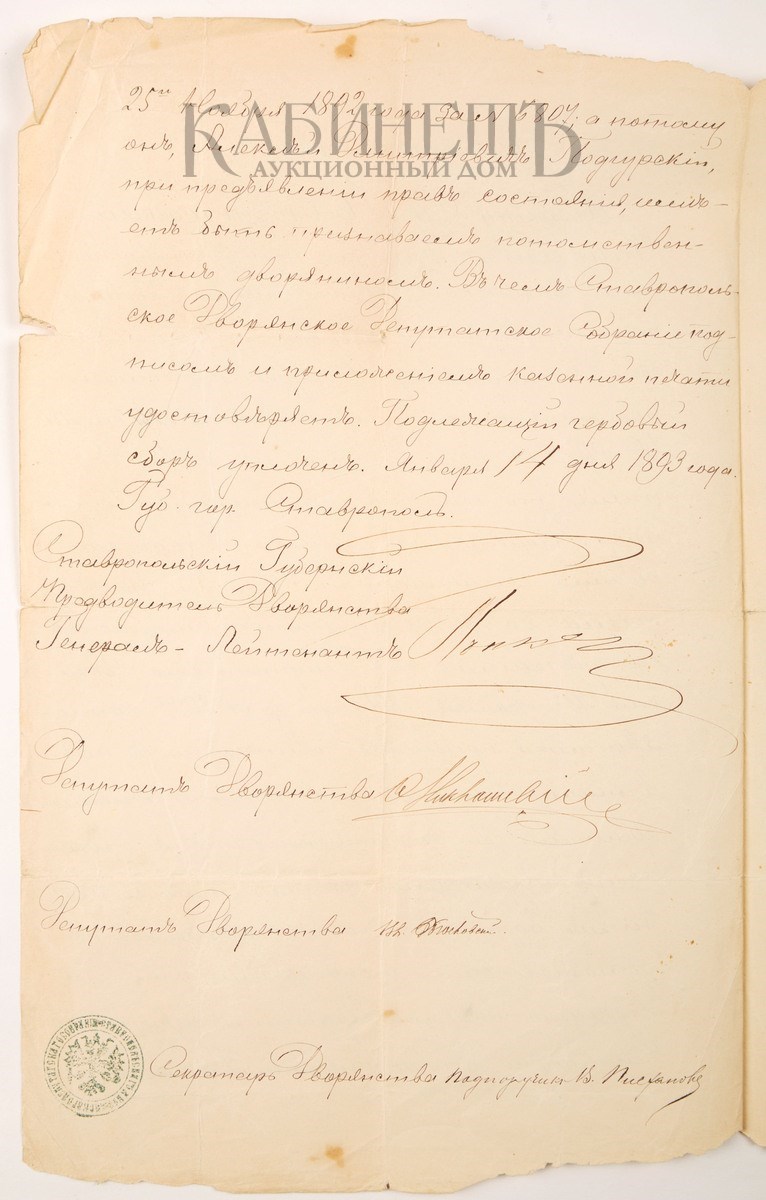 25го Ноября 1892 года за № 6807; а потому
КАБИНЕТЪ
АУКЦИОННЫЙ ДОМ
онъ, Алексѣй Дмитріевичъ Подгурскій,
при предъявленіи правъ состоянія, имѣ-
етъ быть признаваемъ потомствен-
нымъ дворяниномъ. Въ чемъ Ставрополь-
ское Дворянское Депутатское Собраніе под-
писомъ и приложеніемъ казенной печати
удостовѣряетъ. Подлежащій гербовый
сборъ уплоченъ. Января 14 дня 1893 года.
Губ. гор. Ставрополь.
Ставропольскій Губернскій
Предводитель Дворянства
Генералъ-Лейтенантъ
Депутатъ Дворянства
Депутатъ Дворянства
Секретарь Дворянства подпоручикъ В.